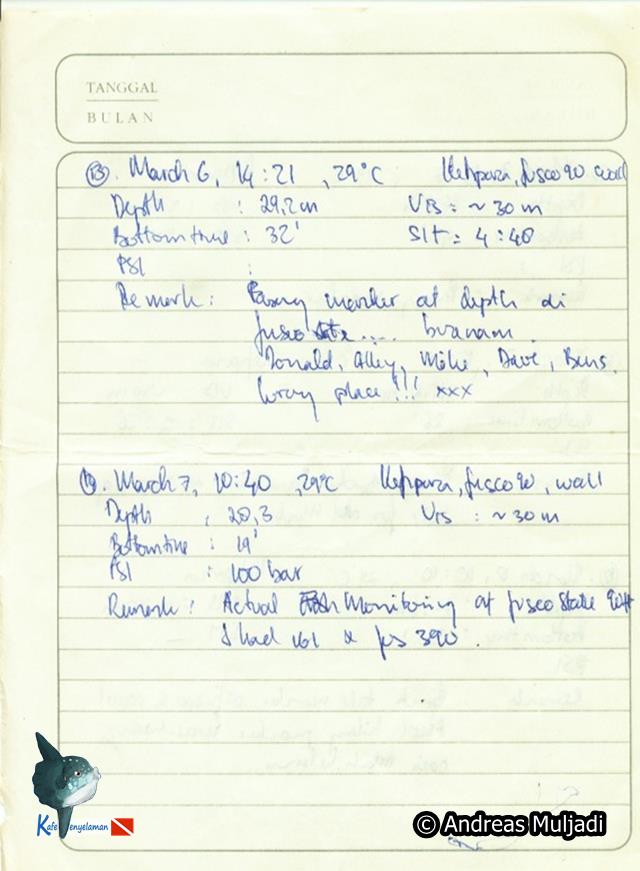 TANGGAL
BULAN
13. March 6, 14:21 , 29°C Kehpara, fusco 90 wall
Depth : 29,2 m Vis = ~ 30 m
Bottom time : 32' SIT = 4:40
PSI :
Remark : marker at depth di
fusco
Donald, Alley, Mike, Dave, Bens.
place !!! xxx
March 7, 10:40 , 29°C Kehpara, fusco 90, wall
Depth : 20,3 Vis : ~ 30 m
Bottom time : 19'
PSI : 100 bar
Remark : Actual Fish Monitoring at fusco
I had 101 390.
Kafe Penyelaman
© Andreas Muljadi